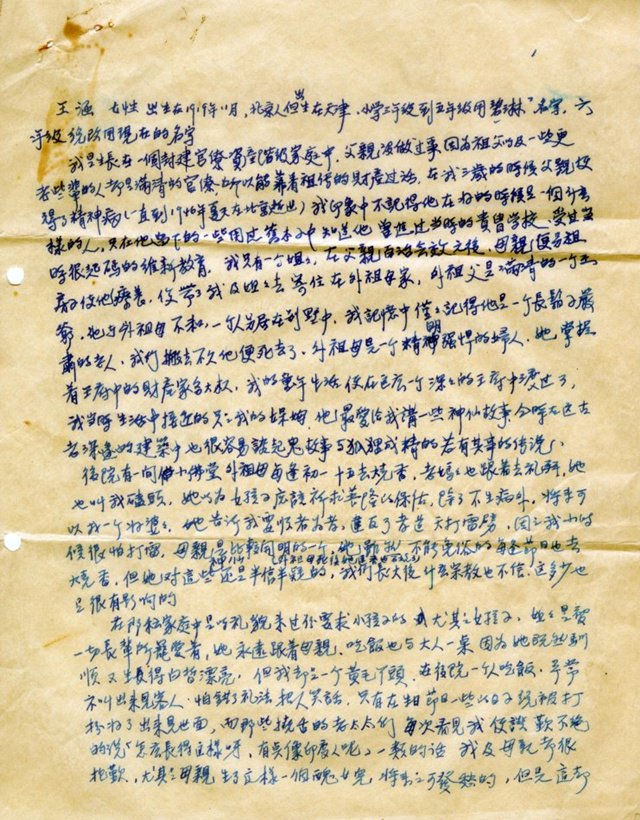 王涵 女性 出生在1919年11月，北京人但出生在天津．小学三年级到五年级用“碧琳”名字，六
年级 统改用现在的名字
我是生长在一個封建官僚資産階級家庭中．父親没做过事 因为祖父以及一些更
老些輩的人都是滿清的官僚 所以能靠着祖传的財産过活．在我三歲的時候父親投
得了精神病（一直到1940年夏天在北京逝世）我印象中不記得他在好的時候是一個什么
樣的人，只在他留下的一些用过筆本子中知道他曾進过当時的貴冑学校．受过当
時很起码的維新教育．我只有一個姐姐，在父親 治無效之後，母親便
使他療養，仅带了我及姐姐去寄住在外祖母家，外祖父是滿清的一个王
爺，他与外祖母不和，一个人另居在别墅中，我記憶中僅僅記得他是一个長鬍子嚴
肅的老人．我们搬去不久他便死去了．外祖母是一个精明强悍的婦人．她掌握
着王府中的財産家务大权．我的童年生活便在这麽一个深深的王府中渡过了，
我当時生活中接近的只是我的保姆．他最爱给我講一些神仙故事．今時在这古
老深邃的建築中也很容易談起鬼故事与狐狸成精的若有其事的传说．
後院有一间佛堂外祖母每逢初一十五去燒香，老媽媽也跟着去礼拜，她
也叫我磕頭，她以为女孩子应該祈求菩薩的保佑，除了不生病外，將来可
以找一个好婆婆．她告訴我要怕老为老，違反了孝道天打雷劈，因之我小時
候很怕打雷．母親是比較開明的一个，她 不能免俗的每逢節日也去
燒香，但她对這些还是半信半疑的，我們長大後什么宗教也不信，这多少也
是很有影响的
在那种家庭中是以礼貌来 要求小孩子的 尤其是女孩子，姐姐是 
一切長輩所寵愛着，她永遠跟着母親．吃飯也与大人一桌 因为她既然 
順又生長得白皙漂亮，但我却是一个黄毛丫頭．在後院一个人吃飯．平常
不叫出来見客人．怕錯了礼法 把人笑話，只有在生日節日一些 日子 被打
扮好了出来見世面，而那些 的老太太们 每次看見我便 歎不絶
的说“怎么長得这樣呀，有点像印度人呢”一類的话 我及母親都很
抱歉，尤其是母親生了这樣一個醜女兒 将来是可發愁的，但是這却